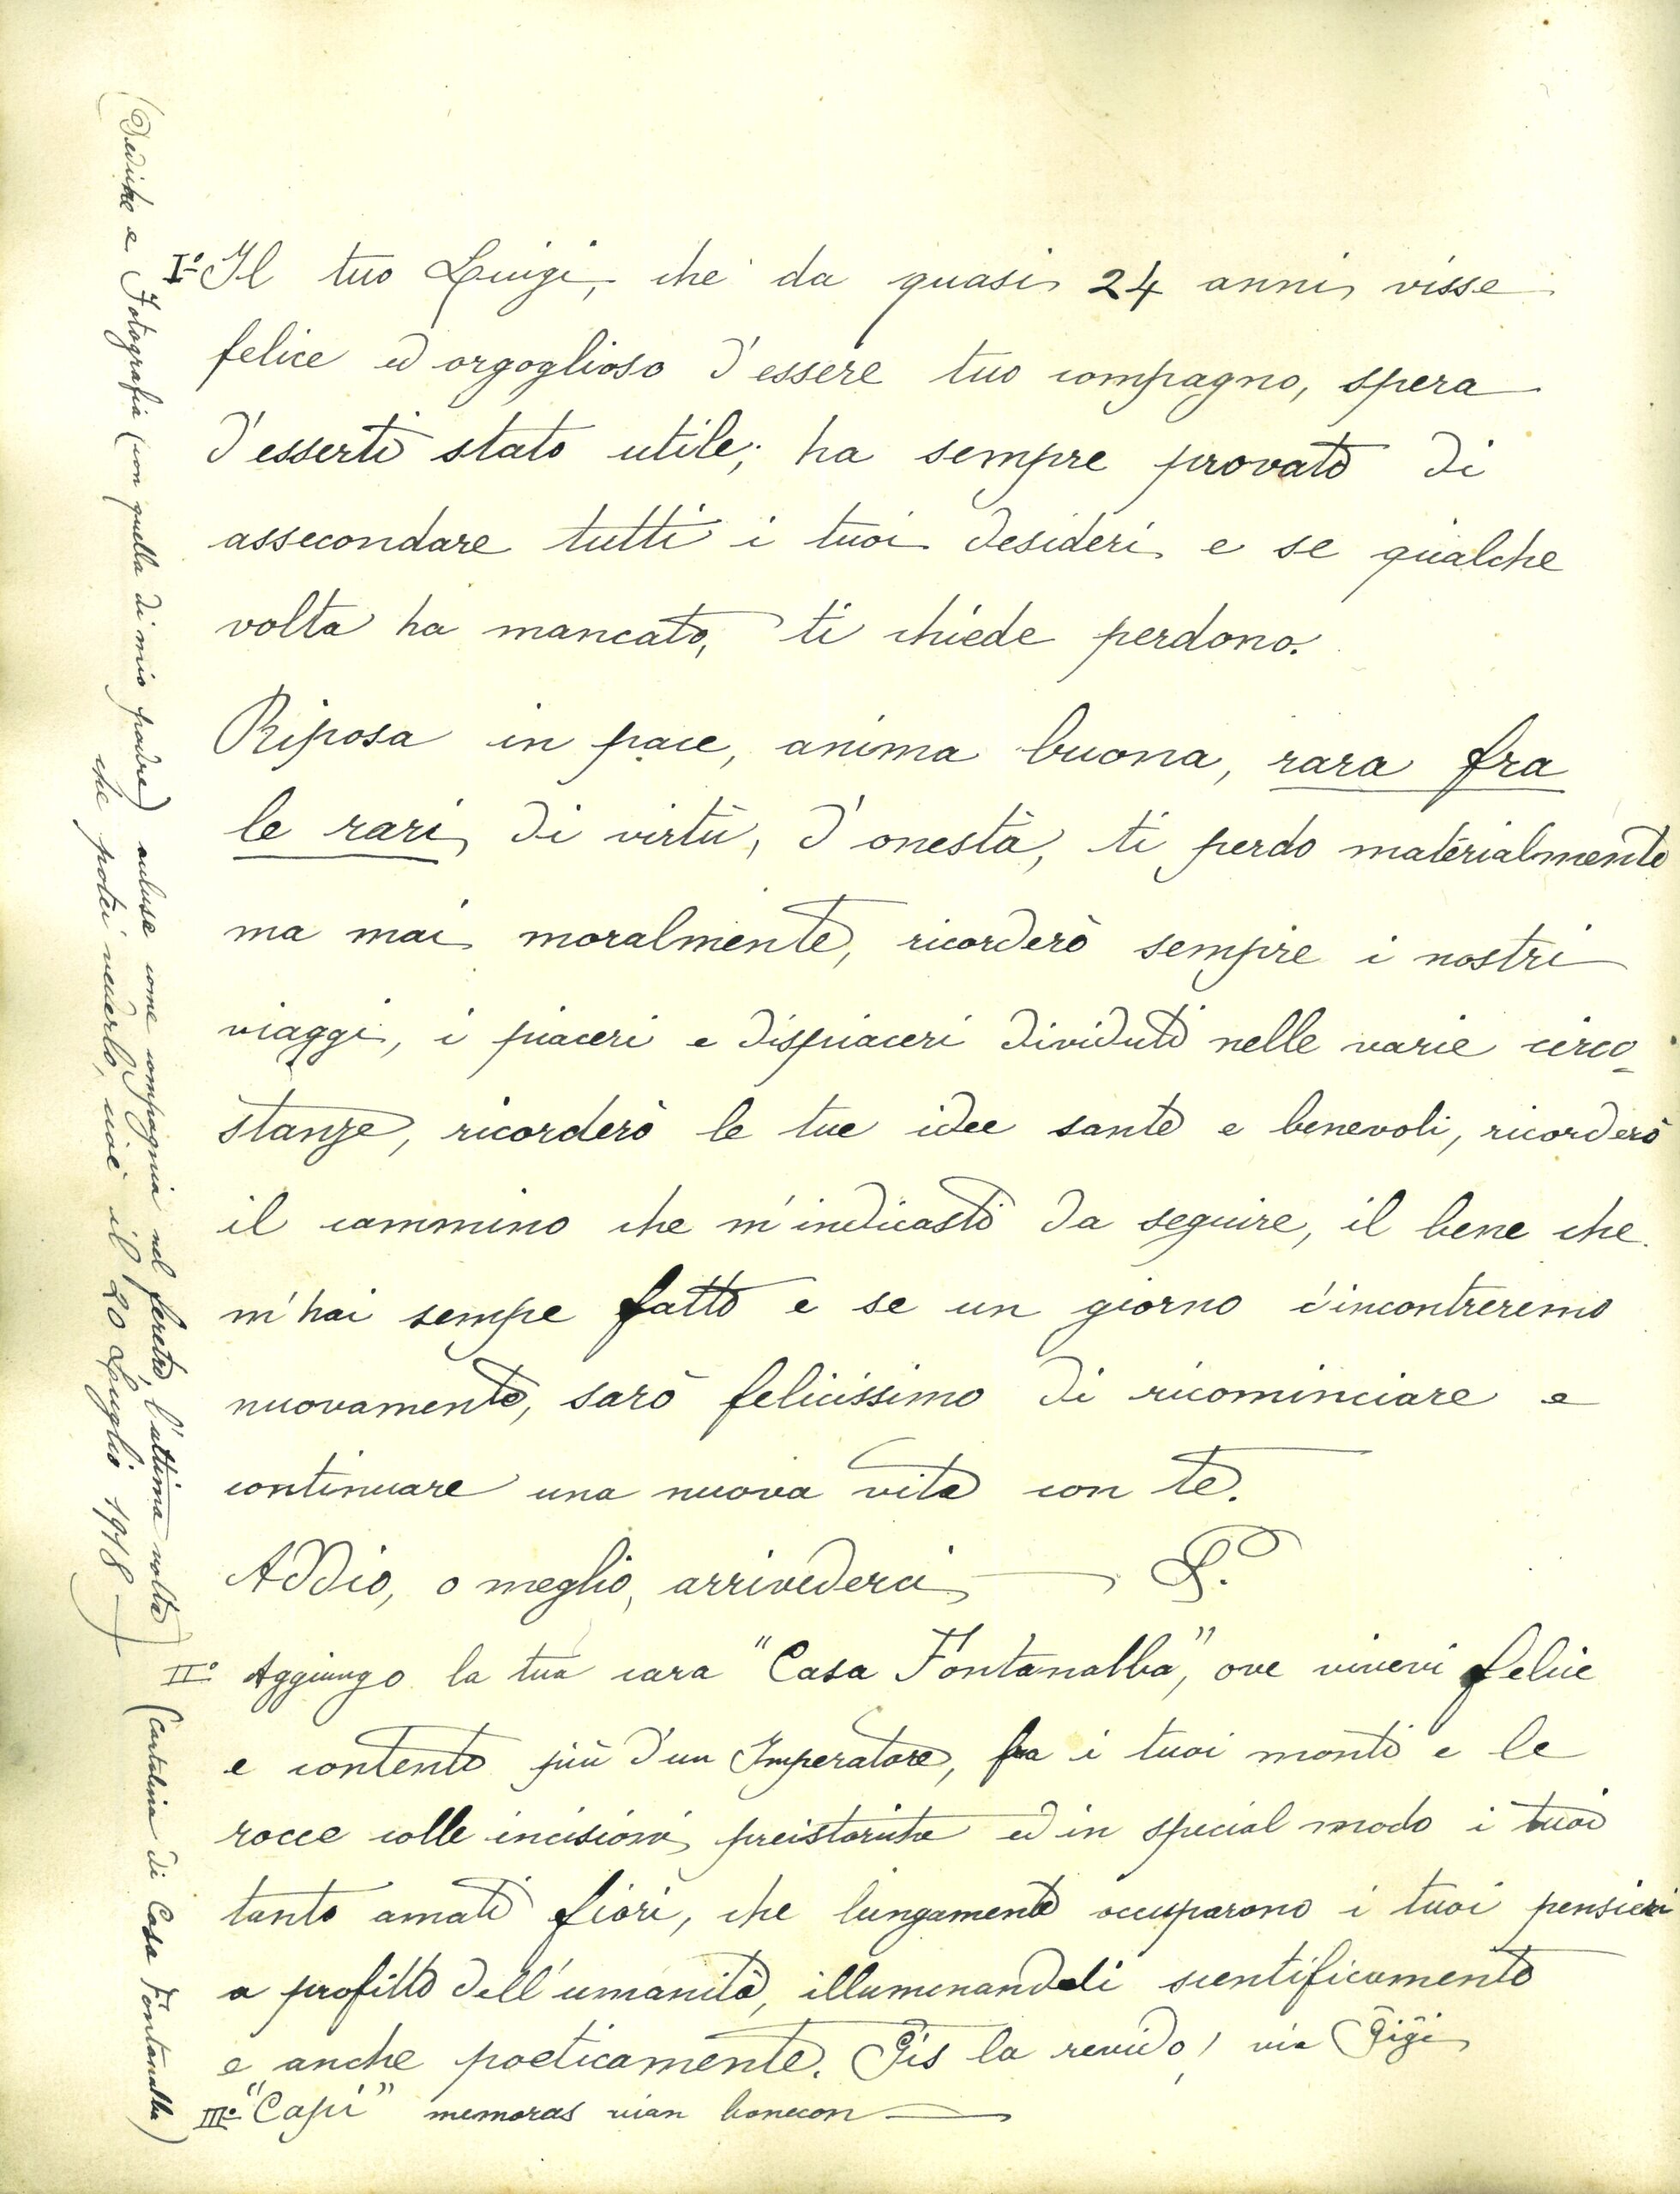 I.º Il tuo Luigi, che da quasi 24 anni visse
felice ed orgoglioso d'essere tuo compagno, spera
d'esserti stato utile; ha sempre provato di
assecondare tutti i tuoi desideri e se qualche
volta ha mancato, ti chiede perdono.
Riposa in pace, anima buona, rara fra
le rari di virtù, d'onestà, ti perdo materialmente
ma mai moralmente, ricorderò sempre i nostri
viaggi, i piaceri e dispiaceri dividuti nelle varie circo-
stanze, ricorderò le tue idee sante e benevoli, ricorderò
il cammino che m'indicasti da seguire, il bene che
m'hai sempe fatto e se un giorno c'incontreremo
nuovamente, sarò felicissimo di ricominciare e
continuare una nuova vita con te.
Addio, o meglio, arrivederci — L.
II.º Aggiungo la tua cara "Casa Fontanalba", ove vivevi felice
e contento più d'un Imperatore, fra i tuoi monti e le
rocce colle incisioni preistoriche ed in special modo i tuoi
tanto amati fiori, che lungamente occuparono i tuoi pensieri
a profitto dell'umanità, illuminandoli scientificamente
e anche poeticamente. Ĝis la revido, via Ĝiĝi
III.º "Capi" memoras vian bonecon —
(Dediche e Fotografia (con quella di mio padre) acluse come compagnia nel feretro, l'ultima volta
che potei vederlo, cioè il 20 Luglio 1918 —)
(Cartolina di Casa Fontanalba)